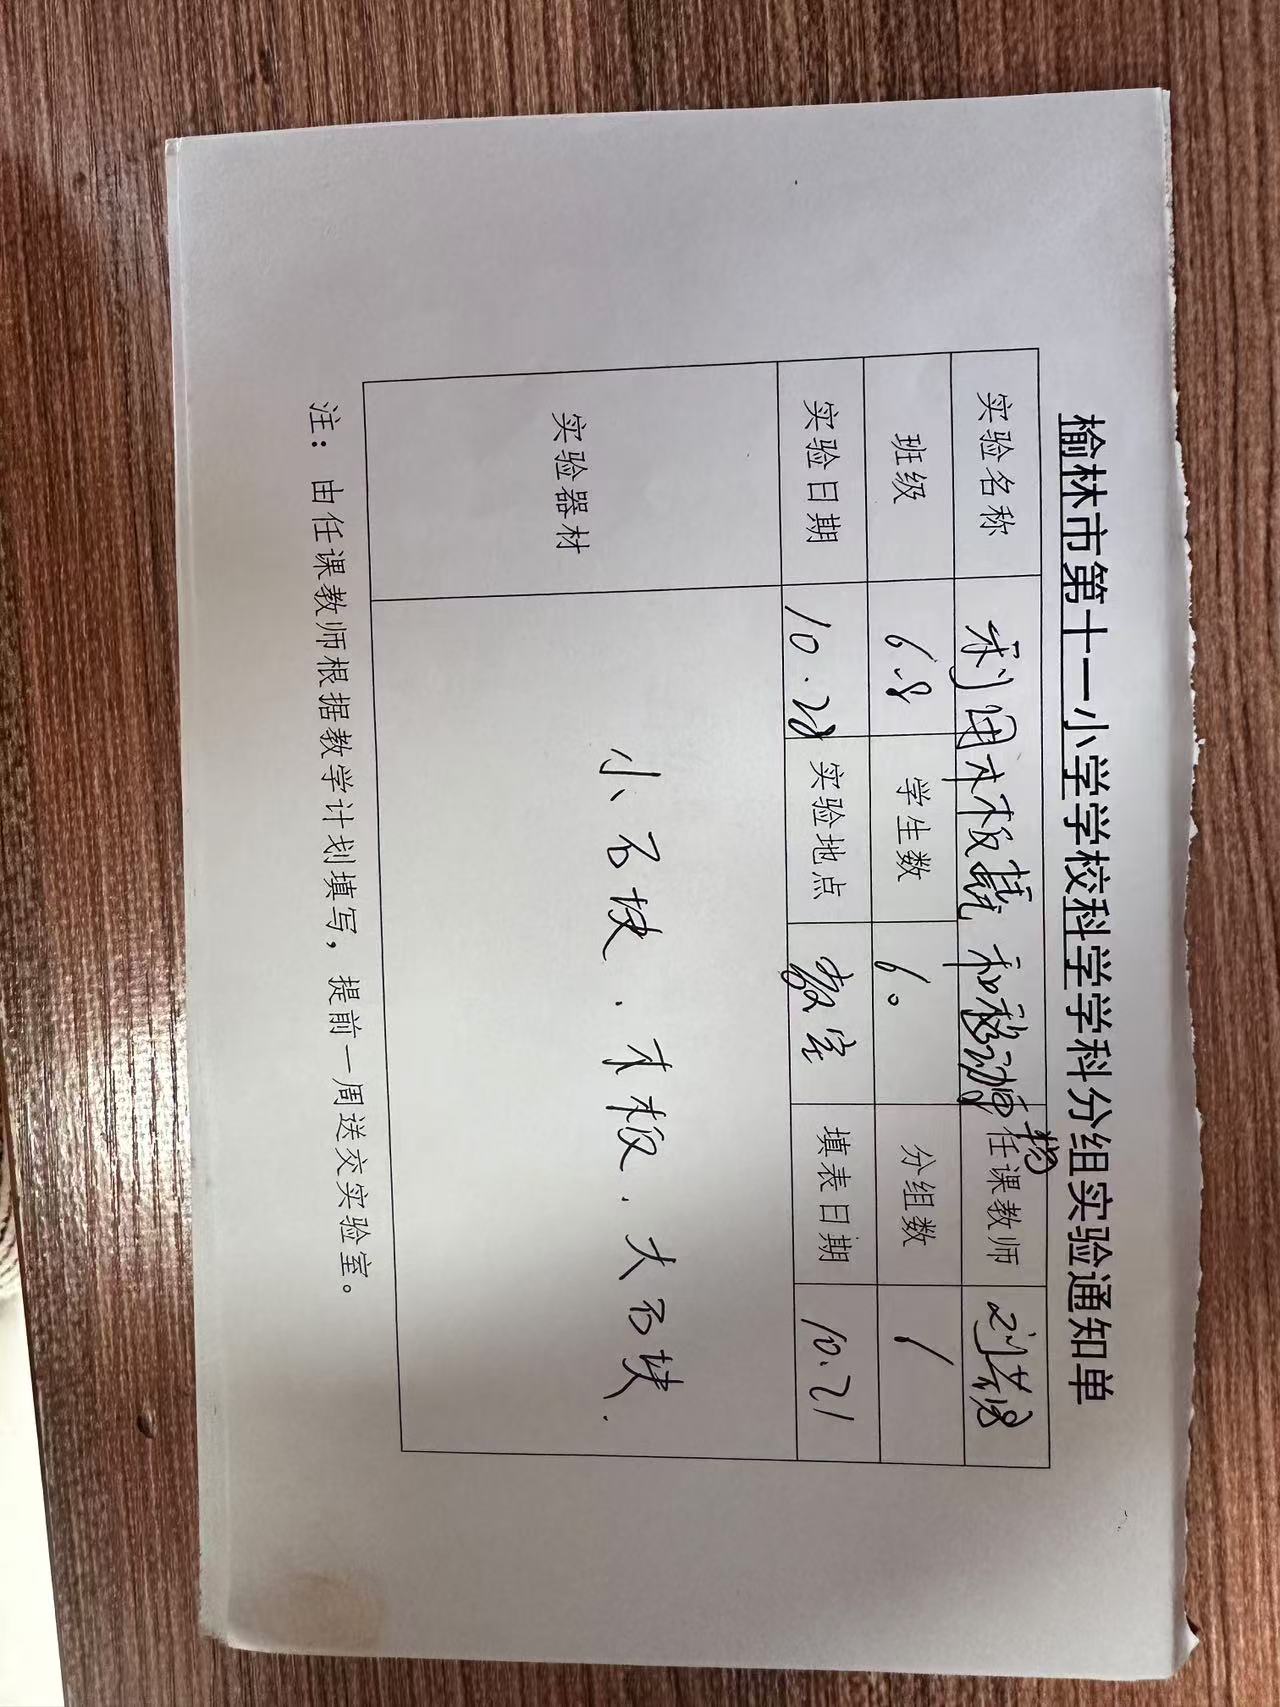 榆林市第十一小学学校科学学科分组实验通知单
实验名称 利用木板撬和移动物 任课教师
班级 6.8 学生数 60 分组数 /
实验日期 10.28 实验地点 教室 填表日期 10.21
实验器材 小石块.木板.大石块.
注：由任课教师根据教学计划填写，提前一周送交实验室。